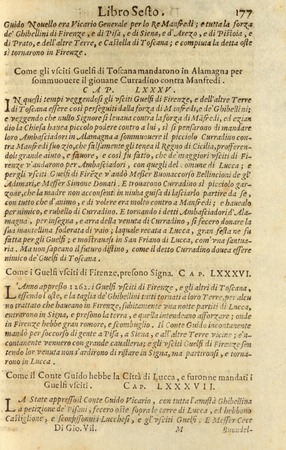 Libro Sesto. 177
Guido Nouello era Vicario Generale per lo Re Manfredi; e tutta la forza
de' Ghibellini di Firenze, e di Pisa, e di Siena, e d'Arezo, e di Pistoia, e
di Prato, e dell'altre Terre, e Castella di Toscana; e compiuta la detta oste
si tornarono in Firenze.
Come gli vsciti Guelfi di Toscana mandarono in Alamagna per
sommouuere il giouane Curradino contra Manfredi.
CAP. LXXXV.
IN questi tempi veggendosi gli vsciti Guelfi di Firenze, e dell'altre Terre
di Toscana essere cosi perseguiti dalla forza di Manfredi, e de' Ghibellini;
e veggendo che nullo Signore si leuaua contra la forza di Mãfredi, ed ezian
dio la Chiesa hauea picciolo podere contro a lui, si si pensarono di mandare
loro Ambasciadori in Alamagna a sommouere il picciolo Curradino con-
tra Manfredi suo zio, che falsamente gli tenea il Regno di Cicilia, profferen-
doli grande aiuto, e fauore, e cosi fu fatto, che de' maggiori vsciti di Fi-
renze v'andarono per Ambasciadori, con quegli del comune di Lucca; e
per gli vsciti Guelfi di Firẽze v'andò Messer Buonaccorso Bellincioni de gl'
Adimari, e Messer Simone Donati. E trouarono Curradino sì picciolo gar-
zone, che la madre non acconsentì in niuna guisa di lasciarlo partire da se,
con tutto che d'animo, e di volere era molto contro a Manfredi; e haueuálo
per nimico, e rubello di Curradino. E tornando i detti Ambasciadori d'Ala-
magna, per insegna, e arra della venuta di Curradino, si fecero donare la
sua mantellina foderata di vaio, laquale recata a Lucca, gran festa ne fu
fatta per gli Guelfi; e mostrauasi in San Friano di Lucca, com'vna santua-
ria. Ma non sapeano il futuro destino, come il detto Curradino douea essere
nimico de' Guelfi di Toscana.
Come i Guelfi vsciti di Firenze, presono Signa. CAP. LXXXVI.
L'Anno appresso 1263. i Guelfi vsciti di Firenze, e gli altri di Toscana,
essendo l'oste, e la taglia de' Ghibellini tutti tornati a loro Terre, per alcu
no trattato che haueano in Firenze, subitamente vna notte partiti di Lucca,
entrarono in Signa, e presono la terra, e quella intendeano afforzare; onde
in Firenze hebbe gran romore, e scombuglio. Il Conte Guido incontanente
mandò per soccorso di gente a Pisa, a Siena, e all'altre Terre vicine; e incontanente
vennero con grande caualleria; e gli vsciti di Firenze sen
tendo lor venuta non s'ardirono di ristare in Signa, ma partironsi, e torna-
rono in Lucca.
Come il Conte Guido hebbe la Città di Lucca, e furonne mandati i
Guelfi vsciti. CAP. LXXXVII.
LA State appresso il Conte Guido Vicario, con tutta l'amistà Ghibellina
a petizione de' Pisani, fecero oste sopra le terre di Lucca, ed hebbono
Castiglione, e sconfissono i Lucchesi, e gl'vsciti Guelfi. E Messer Cece
Di Gio. Vil. M Buondel-